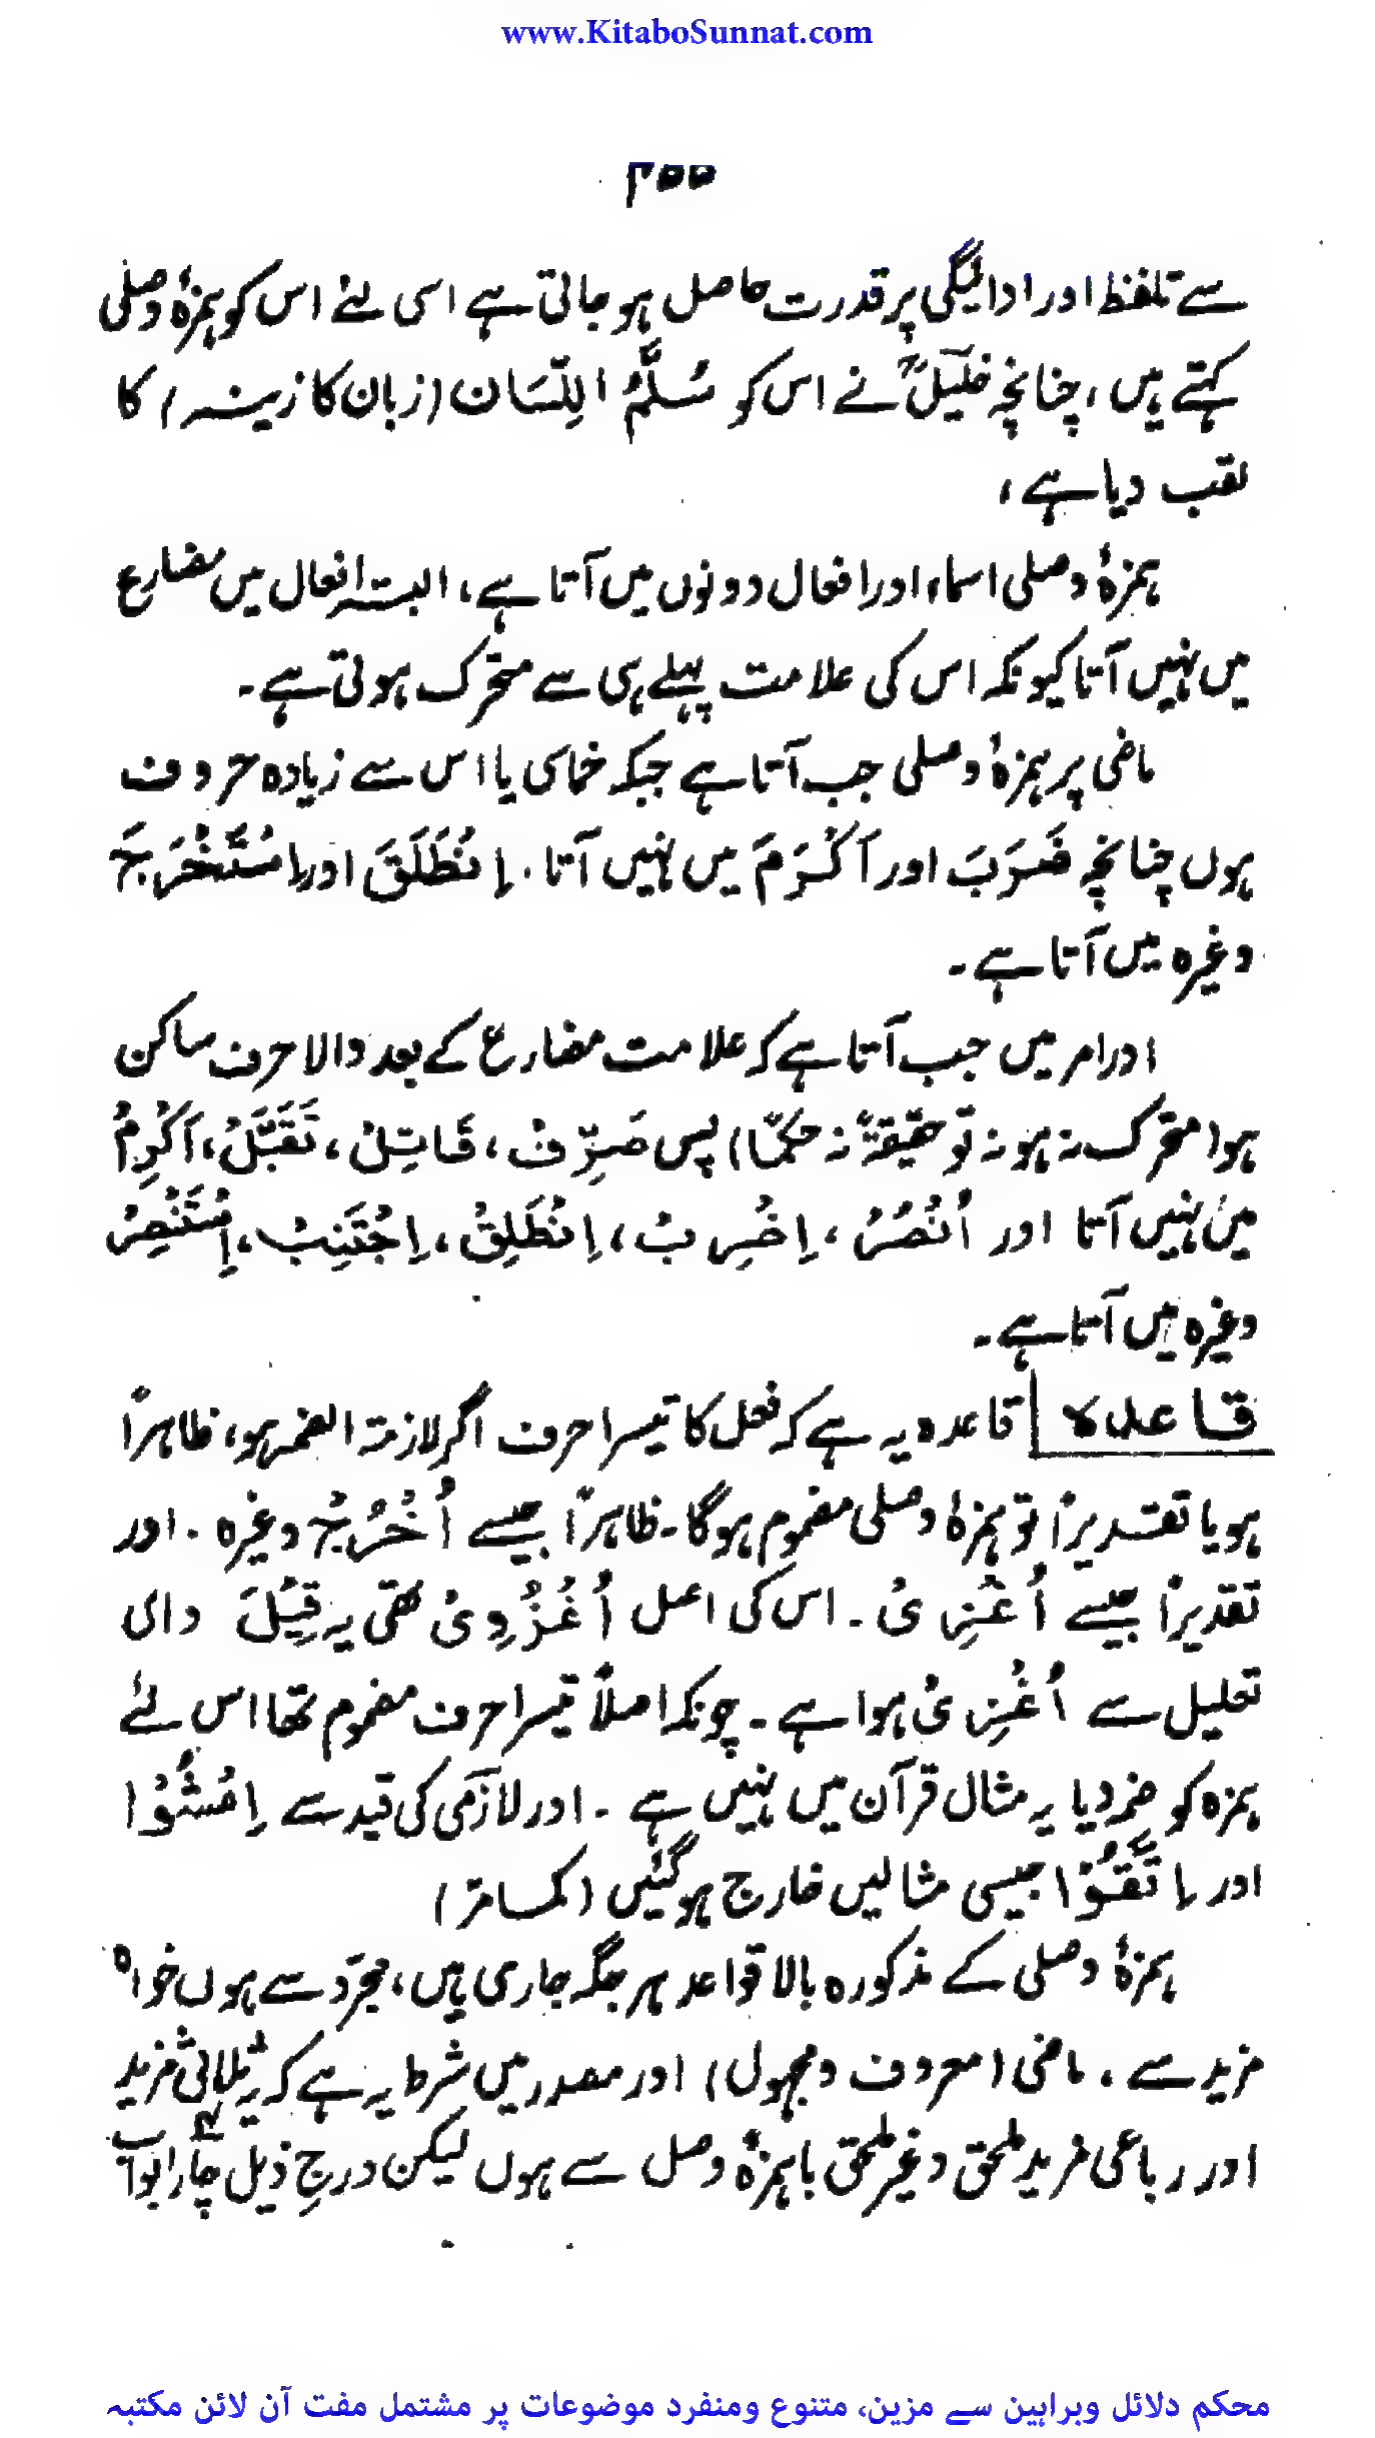 www.KitaboSunnat.com
۲۰۰
سے تلفظ اور ادائیگی پر قدرت حاصل ہو جاتی ہے اسی لئے اس کو ہمزۂ وصلی
کہتے ہیں، چنانچہ خلیلؒ نے اس کو سُلَّمُ اللِّسَان (زبان کا زینہ) کا
لقب دیا ہے،
ہمزۂ وصلی اسماء اور افعال دونوں میں آتا ہے، البتہ افعال میں مضارع
میں نہیں آتا کیونکہ اس کی علامت پہلے ہی سے متحرک ہوتی ہے۔
ماضی پر ہمزۂ وصلی جب آتا ہے جبکہ خماسی یا اس سے زیادہ حروف
ہوں چنانچہ ضَرَبَ اور اَکْرَمَ میں نہیں آتا، اِنْطَلَقَ اور اِسْتَخْرَجَ
وغیرہ میں آتا ہے۔
اور امر میں جب آتا ہے کہ علامت مضارع کے بعد والا حرف ساکن
ہو (متحرک نہ ہو نہ تو حقیقۃً نہ حکمًا) پس صَرِّفْ، قَاتِلْ، تَقَبَّلْ، اَکْرِمْ
میں نہیں آتا اور اُنْصُرْ، اِضْرِبْ، اِنْطَلِقْ، اِجْتَنِبْ، اِسْتَنْصِرْ
وغیرہ میں آتا ہے۔
قاعدہ قاعدہ یہ ہے کہ فعل کا تیسرا حرف اگر لازمۃ الضمہ ہو، ظاہراً
ہو یا تقدیراً تو ہمزۂ وصلی مضموم ہوگا۔ ظاہراً جیسے اُخْرُجْ وغیرہ۔ اور
تقدیراً جیسے اُغْزِیْ۔ اس کی اصل اُغْزُوِیْ تھی یہ قِیْلَ والی
تعلیل سے اُغْزِیْ ہوا ہے۔ چونکہ اصلاً تیسرا حرف مضموم تھا اس لئے
ہمزہ کو ضمہ دیا یہ مثال قرآن میں نہیں ہے۔ اور لازمی کی قید سے اِمْشُوْا
اور اِتَّقُوْا جیسی مثالیں خارج ہو گئیں (کما مرّ)
ہمزۂ وصلی کے مذکورہ بالا قواعد ہر جگہ جاری ہیں، مجرّد سے ہوں خواہ
مزید سے، ماضی (معروف و مجہول) اور مصدر میں شرط یہ ہے کہ یہ ثلاثی مزید
اور رباعی مزید ملحق و غیر ملحق باہمزۂ وصل سے ہوں لیکن درجِ ذیل چار ابواب
محکم دلائل وبراہین سے مزین، متنوع ومنفرد موضوعات پر مشتمل مفت آن لائن مکتبہ